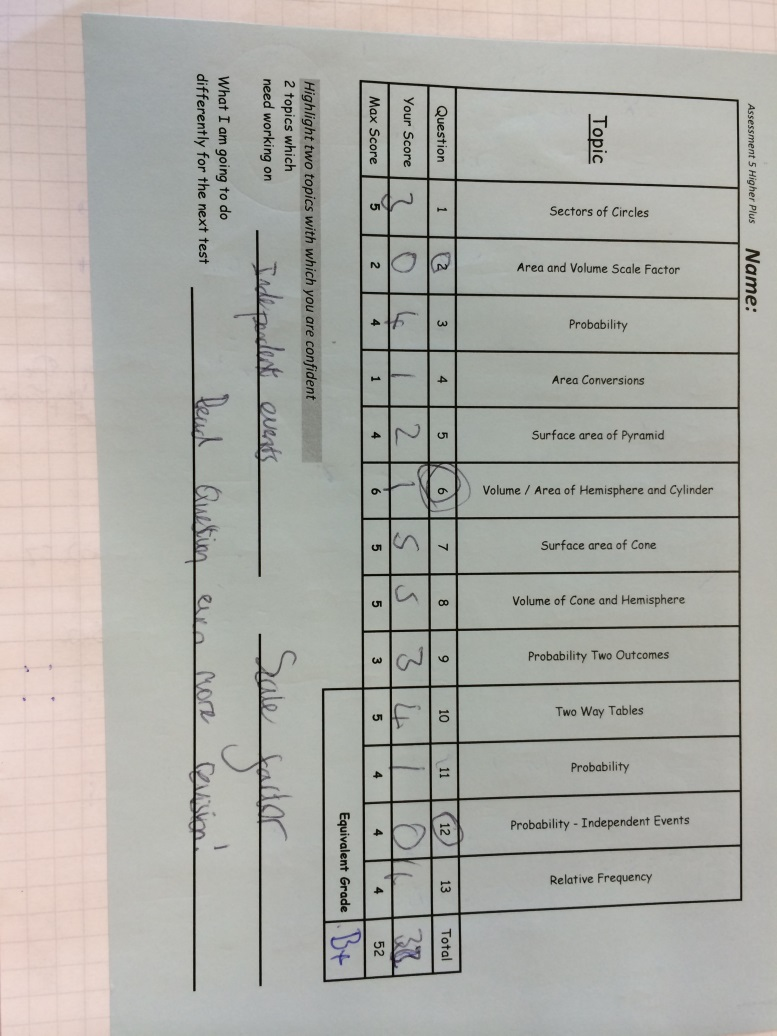 Assessment 5 Higher Plus
Name:
Topic Sectors of Circles Area and Volume Scale Factor Probability Area Conversions Surface area of Pyramid Volume / Area of Hemisphere and Cylinder Surface area of Cone Volume of Cone and Hemisphere Probability Two Outcomes Two Way Tables Probability Probability - Independent Events Relative Frequency
Question 1 2 3 4 5 6 7 8 9 10 11 12 13 Total
Your Score 3 0 4 1 2 1 5 5 3 4 1 0 4
Max Score 5 2 4 1 4 6 5 5 3 5 4 4 4 52
Equivalent Grade B+
Highlight two topics with which you are confident
2 topics which
need working on Independent events Scale factor
What I am going to do
differently for the next test Read Question even more revision!